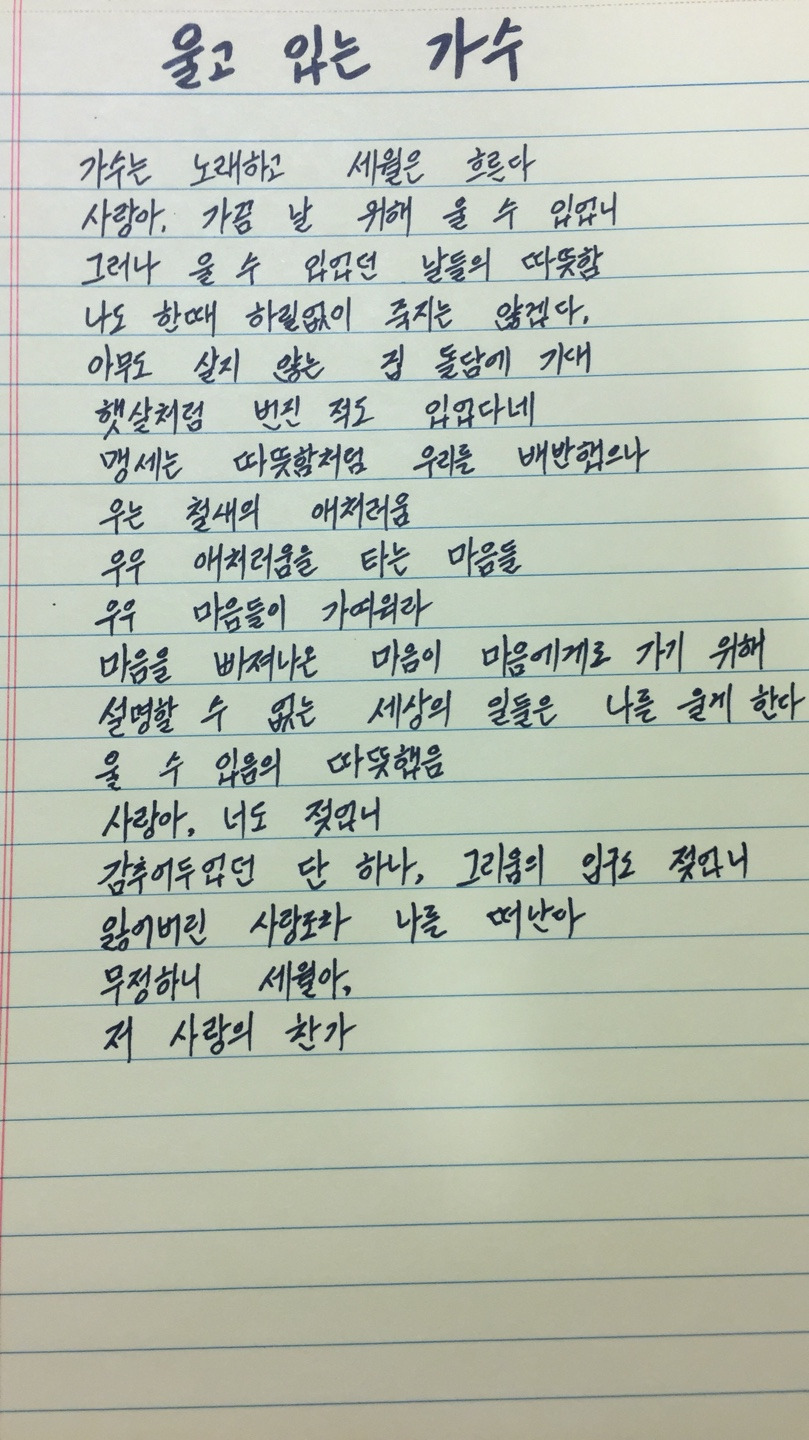 울고 있는 가수
가수는 노래하고 세월은 흐른다
사랑아, 가끔 날 위해 울 수 있었니
그러나 울 수 있었던 날들의 따뜻함
나도 한때 하릴없이 죽지는 않겠다,
아무도 살지 않는 집 돌담에 기대
햇살처럼 번진 적도 있었다네
맹세는 따뜻함처럼 우리를 배반했으나
우는 철새의 애처러움
우우 애처러움을 타는 마음들
우우 마음들이 가여워라
마음을 빠져나온 마음이 마음에게로 가기 위해
설명할 수 없는 세상의 일들은 나를 울게 한다
울 수 있음의 따뜻했음
사랑아, 너도 젖었니
감추어두었던 단 하나, 그리움의 입구도 젖었니
잃어버린 사랑조차 나를 떠난다
무정하니 세월아,
저 사랑의 찬가